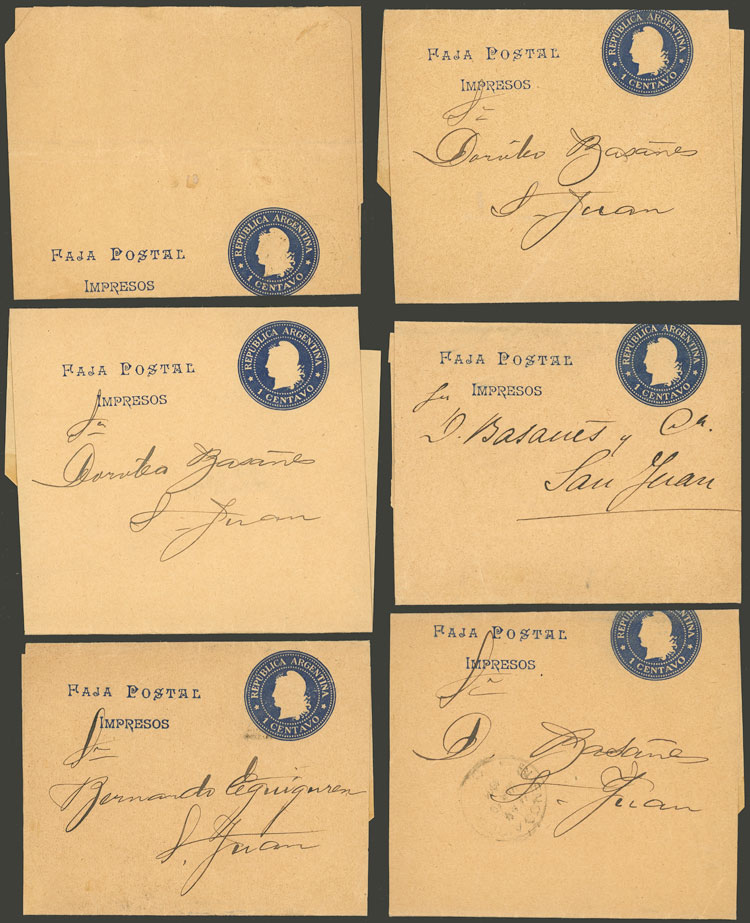 REPÚBLICA ARGENTINA
1 CENTAVO
FAJA POSTAL
IMPRESOS
REPÚBLICA ARGENTINA
1 CENTAVO
FAJA POSTAL
IMPRESOS
Sr
Doroteo Basañes
S. Juan
REPÚBLICA ARGENTINA
1 CENTAVO
FAJA POSTAL
IMPRESOS
Sr
Doroteo Basañes
S. Juan
REPÚBLICA ARGENTINA
1 CENTAVO
FAJA POSTAL
IMPRESOS
Sr
D. Basañes y Ca.
San Juan
REPÚBLICA ARGENTINA
1 CENTAVO
FAJA POSTAL
IMPRESOS
Sr
Bernardo Eguiguren
S. Juan
REPÚBLICA ARGENTINA
1 CENTAVO
FAJA POSTAL
IMPRESOS
Sr
D Basañes
S. Juan